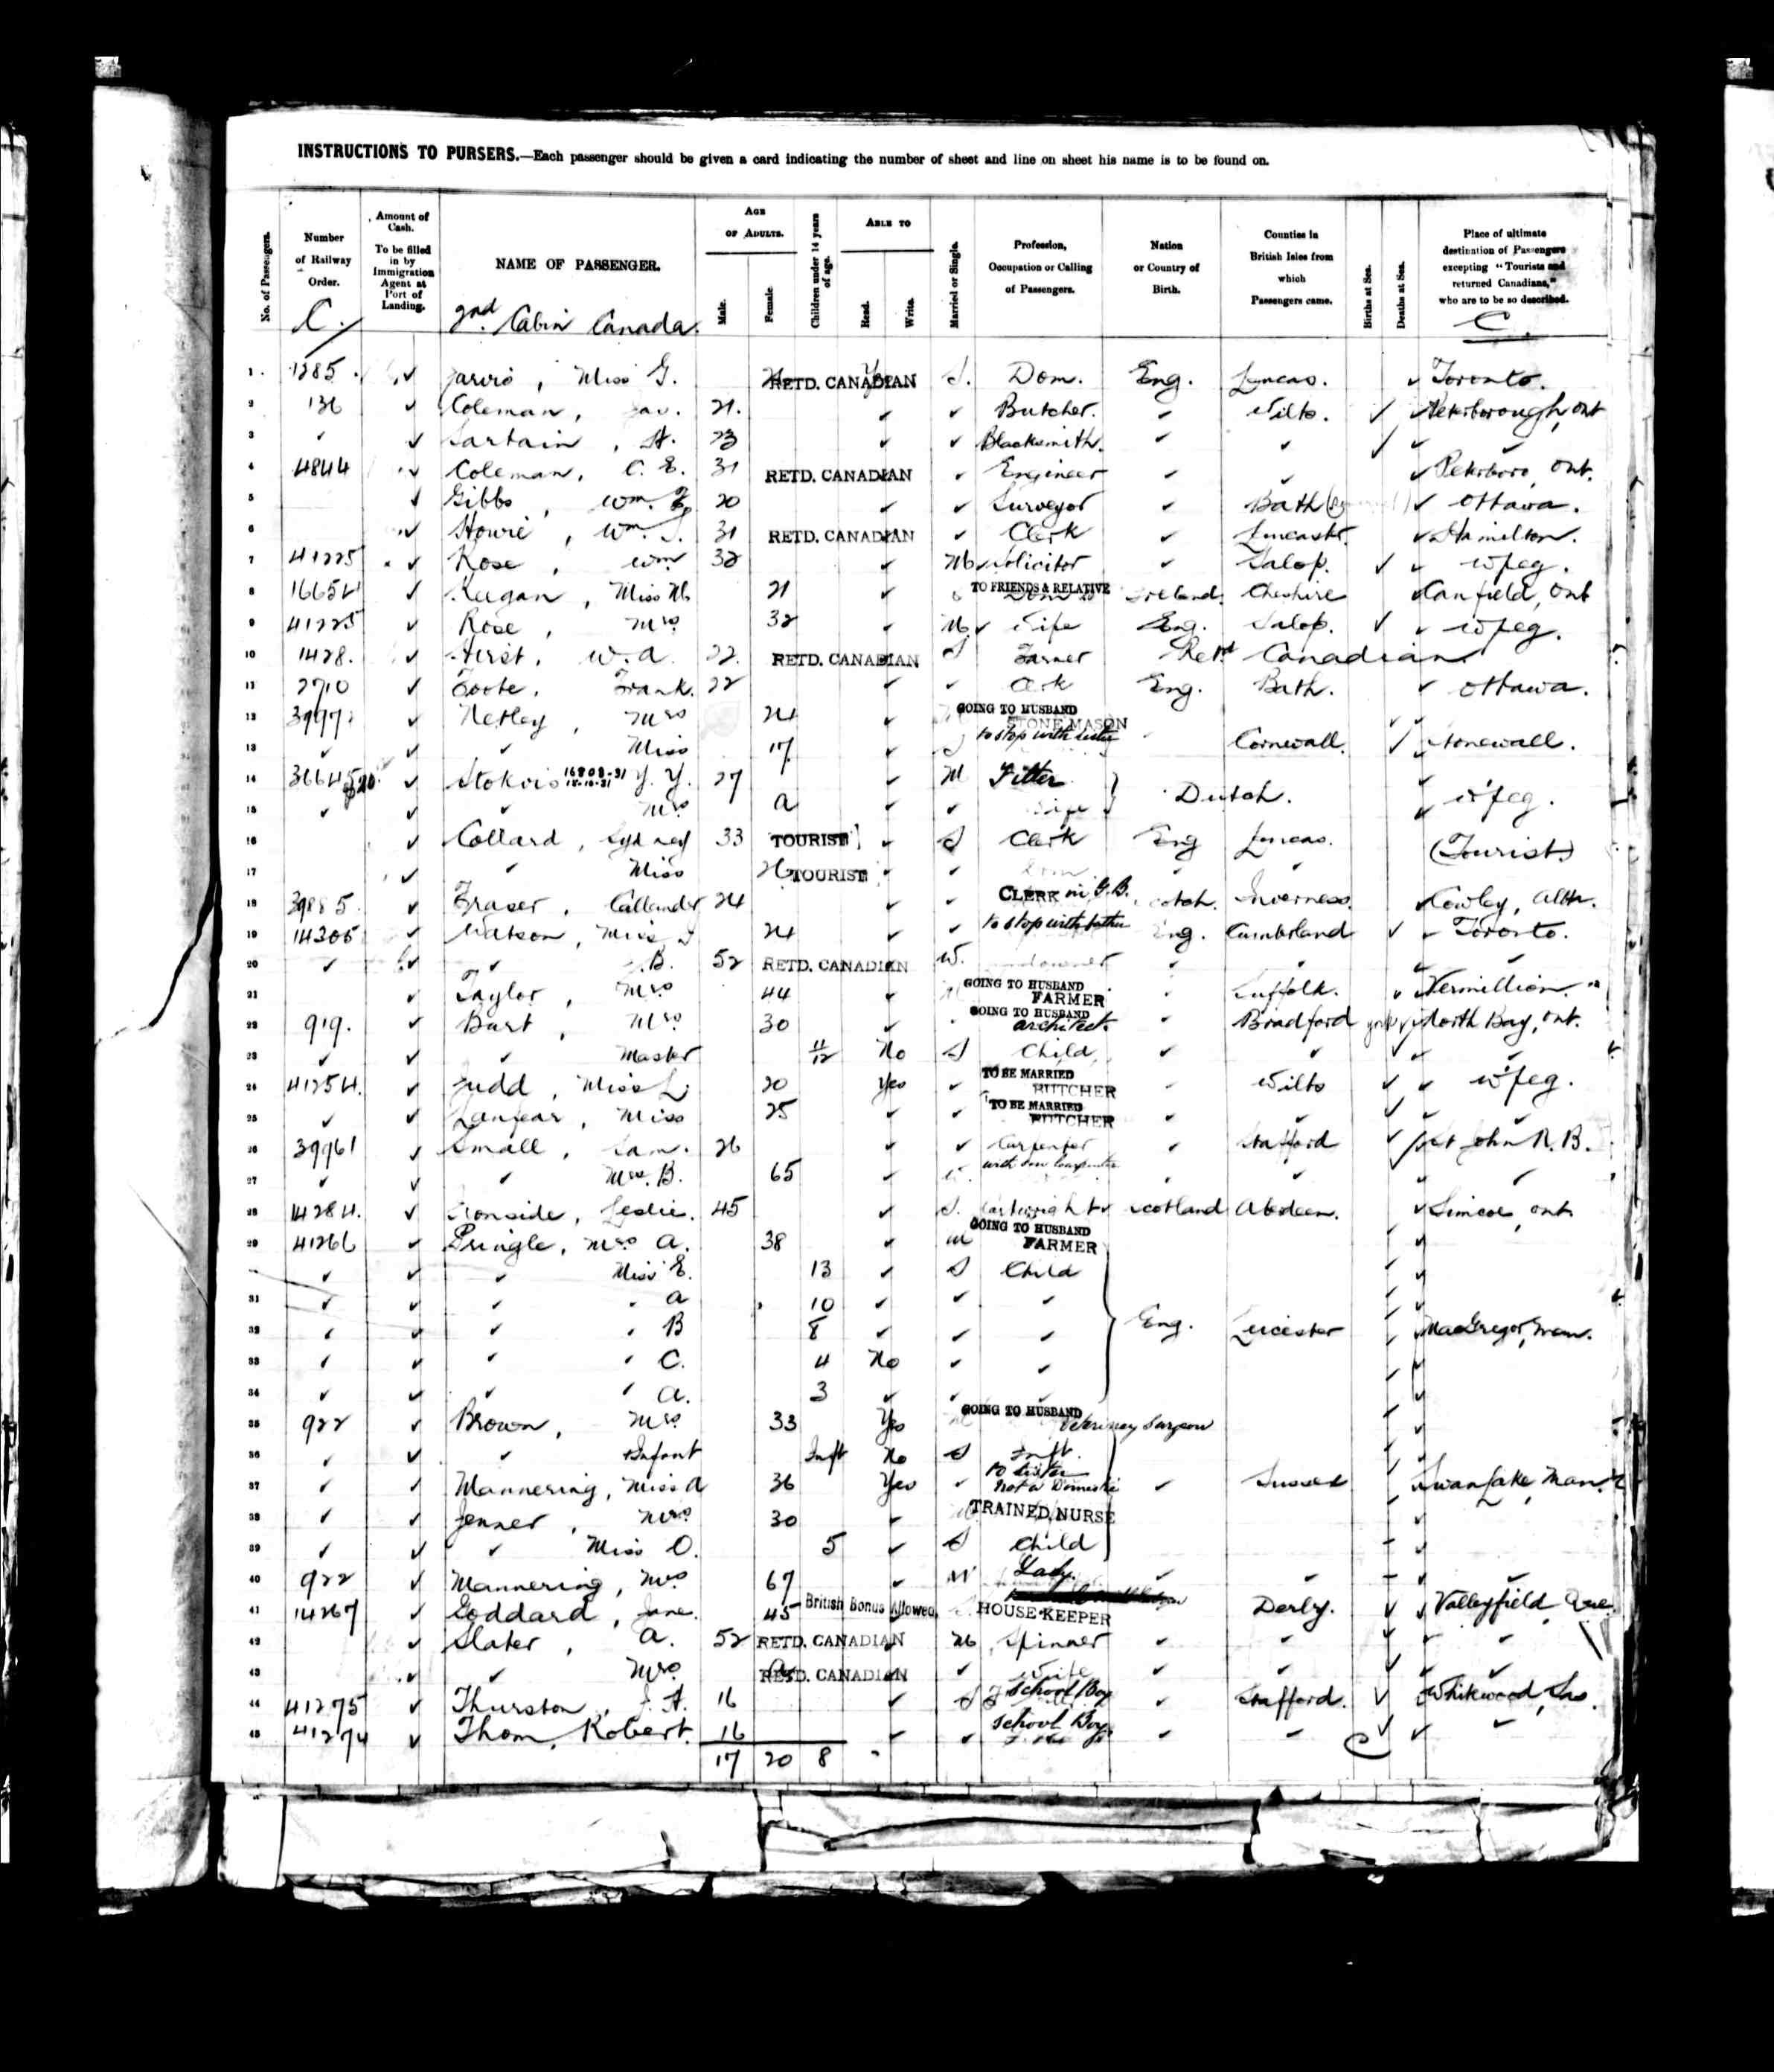 INSTRUCTIONS TO PURSERS.—Each passenger should be given a card indicating the number of sheet and line on sheet his name is to be found on.
No. of Passengers.
Number of Railway Order.
Amount of Cash. To be filled in by Immigration Agent at Port of Landing.
NAME OF PASSENGER.
AGE OF ADULTS.
Male.
Female.
Children under 14 years of age.
ABLE TO
Read.
Write.
Married or Single.
Profession, Occupation or Calling of Passengers.
Nation or Country of Birth.
Counties in British Isles from which Passengers came.
Births at Sea.
Deaths at Sea.
Place of ultimate destination of Passengers excepting "Tourists and returned Canadians," who are to be so described.
C. 2nd Cabin Canada. C.
1 1285 ✓ Jarvis, Miss G. RETD. CANADIAN S. Dom. Eng. Lancas. ✓ Toronto.
2 136 ✓ Coleman, 21. ✓ ✓ Butcher. ✓ Wilts. ✓ ✓ Peterborough, Ont
3 ✓ ✓ Sartain, H. 23 ✓ ✓ Blacksmith. ✓ ✓ ✓ ✓ ✓
4 4844 ✓ Coleman, C. E. 31 RETD. CANADIAN ✓ Engineer ✓ ✓ ✓ Peterboro, Ont.
5 ✓ Gibbs, Wm. 20 ✓ ✓ Surveyor ✓ Bath ✓ Ottawa.
6 ✓ Howie, Wm. J. 31 RETD. CANADIAN ✓ Clerk ✓ Lancaster. ✓ Hamilton.
7 41225 ✓ Rose, Wm 32 ✓ M ✓ Solicitor ✓ Salop. ✓ ✓ W'peg.
8 16654 ✓ Keegan, Miss M. 21 ✓ TO FRIENDS & RELATIVE Dom Ireland. Cheshire ✓ Canfield, Ont
9 41225 ✓ Rose, Mrs 32 ✓ M. ✓ Wife Eng. Salop. ✓ ✓ W'peg.
10 1428. ✓ Hirst, W. A. 22. RETD. CANADIAN S Farmer Retd Canadian
11 2710 ✓ Foote, Frank. 22 ✓ ✓ Clerk Eng. Bath. ✓ Ottawa.
12 39971 ✓ Netley, Mrs 24 ✓ GOING TO HUSBAND STONE MASON
13 ✓ ✓ ✓ Miss 17 ✓ S to stop with sister Cornwall. ✓ Stonewall.
14 36645 ✓ Stokvis Y. Y. 27 ✓ M Fitter } Dutch. ✓
15 ✓ ✓ ✓ Mrs a ✓ ✓ Wife ✓ W'peg.
16 ✓ Collard, Sydney 33 TOURIST ✓ S Clerk Eng Lancas. (Tourist)
17 ✓ ✓ Miss TOURIST ✓ ✓ ✓
18 39885. ✓ Fraser, Callander 24 ✓ ✓ CLERK in G.B. Scotch. Inverness. ✓ Cowley, Alta.
19 14305 ✓ Watson, Miss 24 ✓ ✓ to stop with father Eng. Cumberland ✓ ✓ Toronto.
20 ✓ ✓ ✓ B. 52 RETD. CANADIAN W. ✓ ✓ ✓ ✓
21 ✓ Taylor, Mrs 44 ✓ GOING TO HUSBAND FARMER Suffolk. ✓ Vermillion. "
22 919. ✓ Burt, Mrs 30 ✓ GOING TO HUSBAND architect ✓ Bradford ✓ North Bay, Ont.
23 ✓ ✓ ✓ Master 11/12 No S Child, ✓ ✓ ✓ ✓ ✓
24 41254. ✓ Judd, Miss L. 20 Yes ✓ TO BE MARRIED BUTCHER ✓ Wilts ✓ ✓ W'peg.
25 ✓ ✓ Lanfear, Miss 25 ✓ ✓ TO BE MARRIED BUTCHER ✓ ✓ ✓ ✓ ✓
26 39961 ✓ Small, Sam. 26 ✓ ✓ Carpenter ✓ Stafford ✓ St John N.B.
27 ✓ ✓ ✓ Mrs. B. 65 ✓ with son Carpenter ✓ ✓ ✓
28 14284. ✓ Ironside, Leslie. 45 ✓ S. Cartwright ✓ Scotland Aberdeen. ✓ Simcoe, Ont.
29 41266 ✓ Pringle, Mrs A. 38 ✓ M GOING TO HUSBAND FARMER ✓
✓ ✓ ✓ Miss E. 13 ✓ S Child ✓
31 ✓ ✓ ✓ " A 10 ✓ ✓ ✓ ✓
32 ✓ ✓ ✓ " B 8 ✓ ✓ ✓ } Eng. Leicester MacGregor, Man.
33 ✓ ✓ ✓ " C. 4 No ✓ ✓ ✓
34 ✓ ✓ ✓ " A. 3 ✓ ✓ ✓ ✓
35 922 ✓ Brown, Mrs 33 Yes GOING TO HUSBAND Veterinary Surgeon ✓
36 ✓ ✓ ✓ Infant Inft No S Inft. ✓
37 ✓ ✓ Mannering, Miss A 36 Yes ✓ to sister not a Domestic ✓ Sussex Swan Lake, Man.
38 ✓ ✓ Jenner, Mrs 30 ✓ TRAINED NURSE ✓
39 ✓ ✓ ✓ Miss O. 5 ✓ S Child ✓
40 922 ✓ Mannering, Mrs 67 ✓ W Lady. ✓ ✓ ✓
41 14267 ✓ Goddard, Jane. 45 British Bonus Allowed HOUSE KEEPER Derby. ✓ ✓ Valleyfield, Que.
42 ✓ Slater, A. 52 RETD. CANADIAN M Spinner ✓ ✓ ✓ ✓
43 ✓ ✓ Mrs. RETD. CANADIAN ✓ Wife ✓ ✓ ✓ ✓ ✓
44 41275 ✓ Thurston, H. 16 ✓ S School Boy ✓ Stafford. ✓ Whitewood, Sas.
45 41274 ✓ Thom, Robert. 16 ✓ ✓ School Boy. ✓ ✓ ✓ ✓ ✓
17 20 8